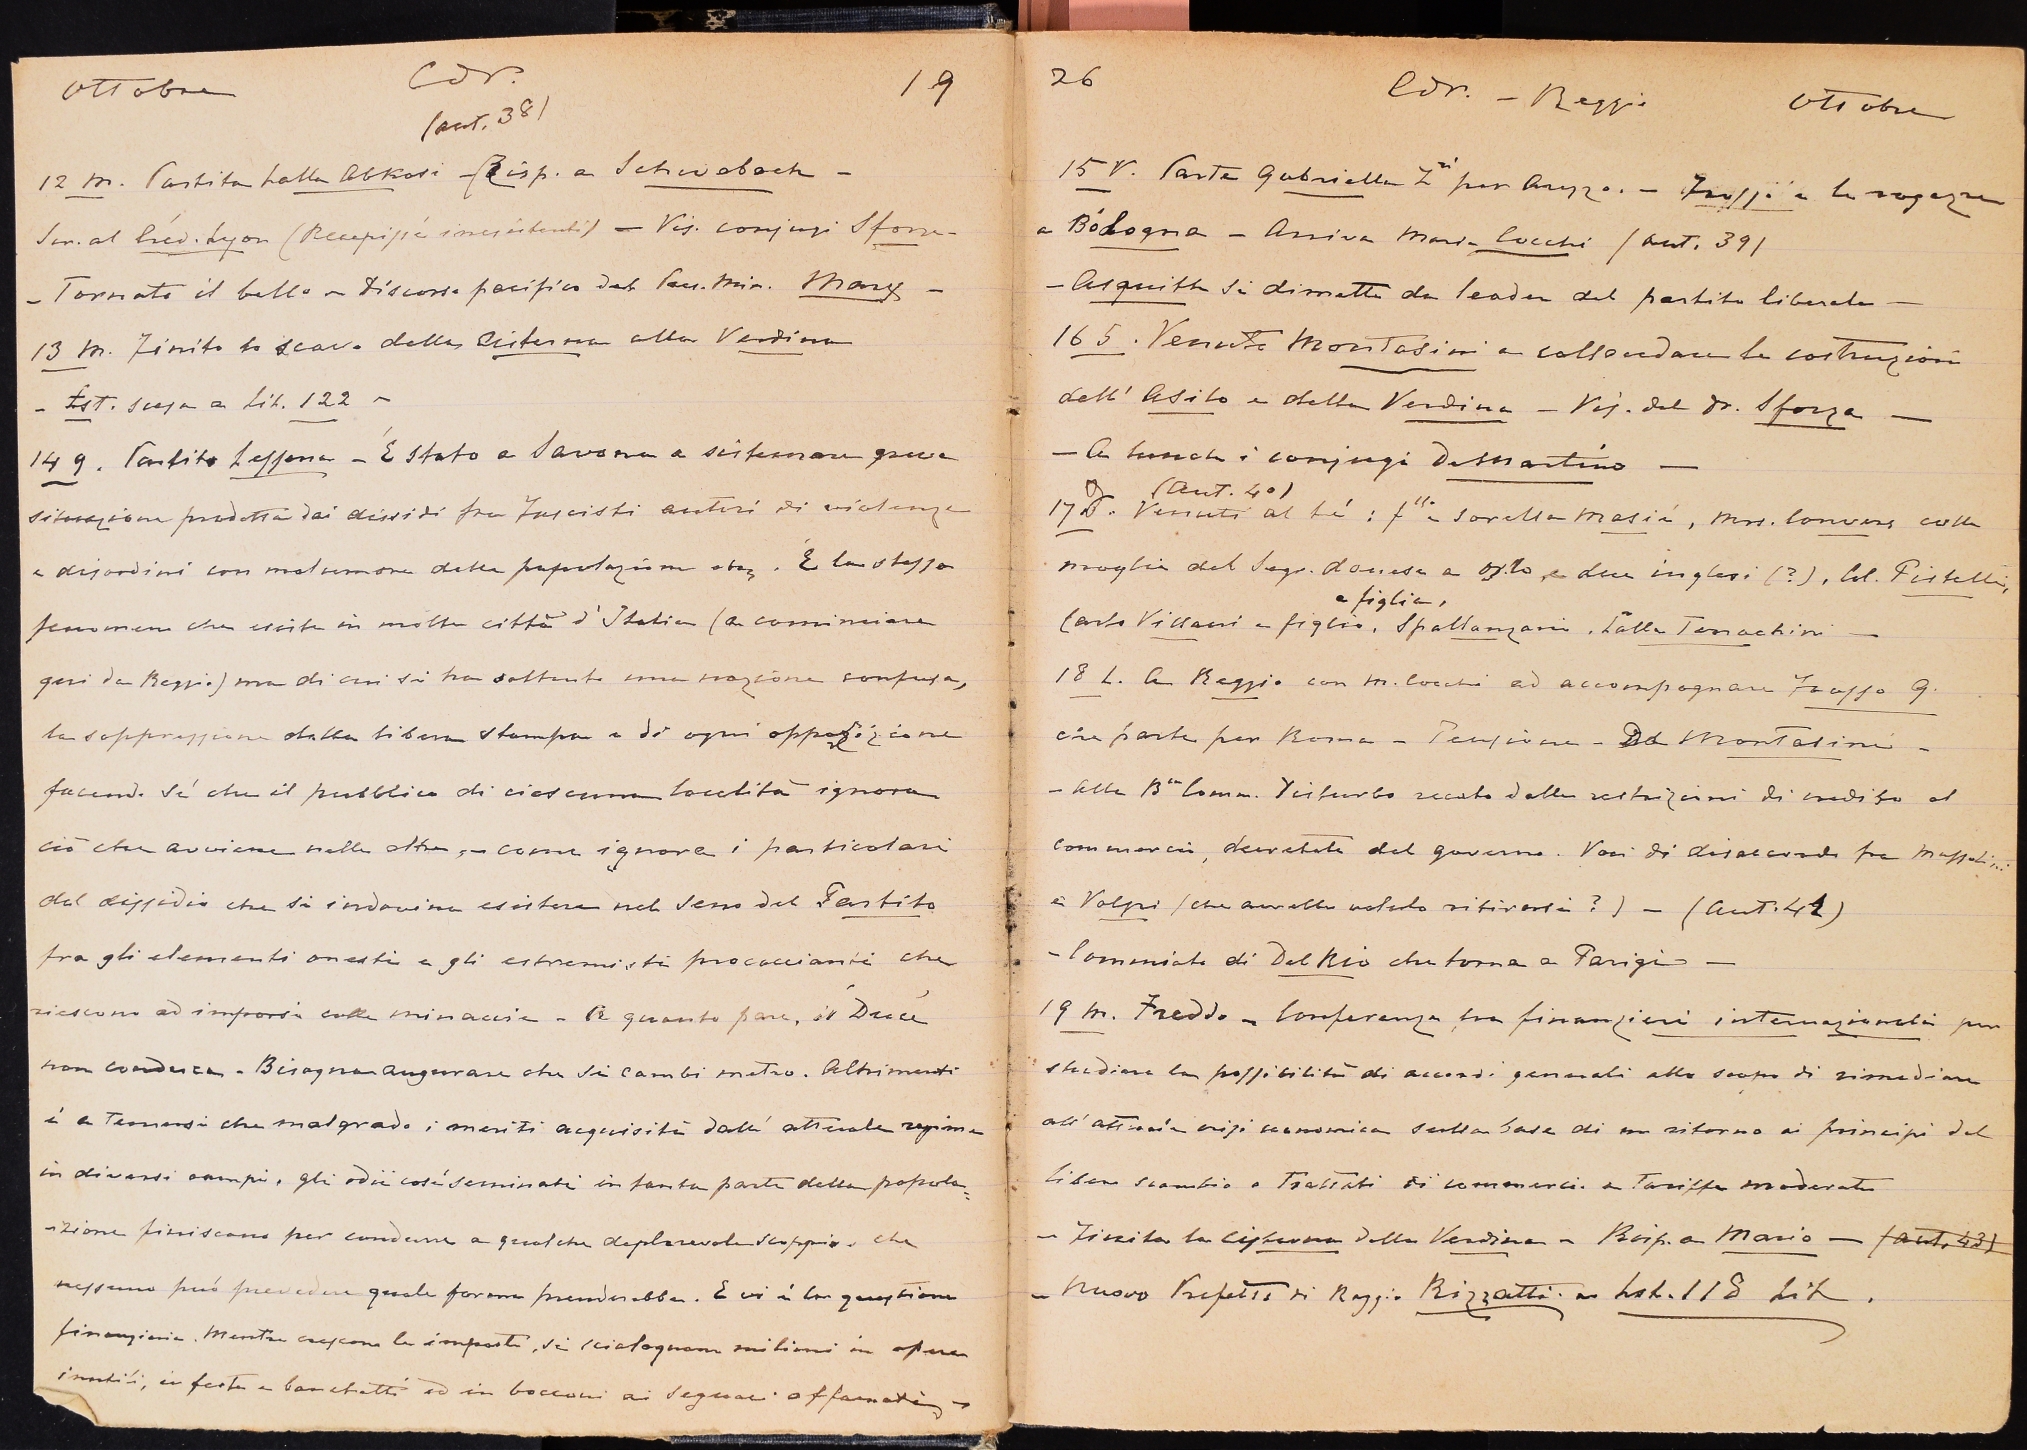 Ottobre Cdr. 19
(aut. 38)
12 M. Partita Lalla Abkasi - Risp. a Schwabach -
Scr. al Créd. Lyon (Recepissé inesistenti) - Vis. conjugi Sforza -
- Tornato il bello - Discorso pacifico del Canc. Min. Marx -
13 M. Finito lo scavo della cisterna alla Verdina
- Est. scesa a Lit. 122 -
14 g. Partito Lessona - È stato a Savona a sistemare grave
situazione prodotta dai dissidi fra Fascisti autori di violenze
e disordini con malumore della popolazione etc. È lo stesso
fenomeno che esiste in molte città d'Italia (a cominciare
qui da Reggio) ma di cui si ha soltanto una nozione confusa,
la soppressione della libera stampa e di ogni opposizione
facendo sì che il pubblico di ciascuna località ignora
ciò che avviene nelle altre, - come ignora i particolari
del dissidio che si indovina esistere nel seno del Partito
fra gli elementi onesti e gli estremisti procaccianti che
riescono ad imporsi colle minaccie - A quanto pare, il Duce
non conduce - Bisogna augurare che si cambi metro. Altrimenti
è a temersi che malgrado i meriti acquisiti dall' attuale regime
in diversi campi, gli odii così seminati in tanta parte della popola=
-zione finiscano per condurre a qualche deplorevole scoppio, che
nessuno può prevedere quale forma prenderebbe. E vi è la questione
finanziaria. Mentre crescono le imposte, si scialoquano milioni in opere
inutili, in feste e banchetti ed in bocconi ai seguaci affamati -
26 Cdr. - Reggio Ottobre
15 V. Parte Gabriella Z.ri per Arezzo. - Frossi e le ragazze
a Bologna - Arriva Maria Cocchi (aut. 39)
- Asquith si dimette da leader del partito liberale -
16 S. Venuto Montasini a collaudare le costruzioni
dell' Asilo e della Verdina - Vis. del Dr. Sforza -
- A lunch i conjugi DeMartino -
(aut. 40)
17 D. Venuti al té : f.lli e sorella Masié, Mrs. Convers colla
moglie del Segr. danese a Oslo e due inglesi (?), Col. Pistelli,
e figlia,
Carlo Villani e figlio, Spallanzani, Lalla Terrachini -
18 L. A Reggio con M. Cocchi ad accompagnare Frasso G.
che parte per Roma - Pensione - Da Montasini -
- Alla B.ca Comm. Disturbo recato dalle restrizioni di credito al
commercio, decretate dal governo. Voci di disaccordo fra Mussolini
e Volpi (che avrebbe voluto ritirarsi ?) - (aut. 41)
- Commiato di Del Rio che torna a Parigi -
19 M. Freddo - Conferenza fra finanzieri internazionali per
studiare la possibilità di accordi generali allo scopo di rimediare
all' attuale crisi economica sulla base di un ritorno ai principi del
libero scambio o Trattati di commercio a Tariffe moderate
- Finita la cisterna della Verdina - Risp. a Mario - (aut. 43)
- Nuovo Prefetto di Reggio Rizzatti - Est. 118 Lit.